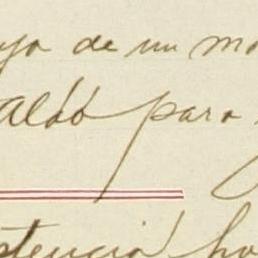 yo de un mo
aldó para
stencia ho